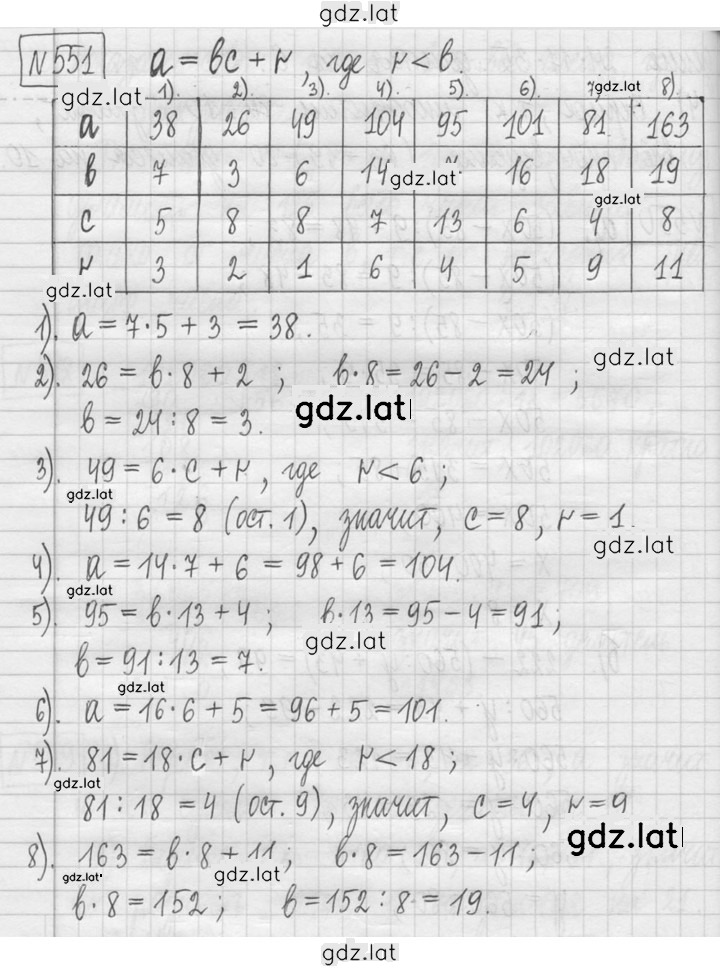 gdz.lat
N 551 a = вc + r, где r < в.
gdz.lat 1). 2). 3). 4). 5). 6). 7) gdz.lat 8).
a 38 26 49 104 95 101 81 163
в 7 3 6 14 gdz.lat 16 18 19
gdz.lat
c 5 8 8 7 13 6 4 8
r 3 2 1 6 4 5 9 11
gdz.lat
1). a = 7·5 + 3 = 38.
gdz.lat
2). 26 = в·8 + 2 ; в·8 = 26 − 2 = 24 ;
gdz.lat
в = 24 : 8 = 3.
3). 49 = 6·c + r, где r < 6 ;
gdz.lat
49 : 6 = 8 (ост. 1), значит, c = 8, r = 1.
gdz.lat
4). a = 14·7 + 6 = 98 + 6 = 104.
gdz.lat
5). 95 = в·13 + 4 ; в·13 = 95 − 4 = 91 ;
gdz.lat
в = 91 : 13 = 7.
gdz.lat
6). a = 16·6 + 5 = 96 + 5 = 101.
7). 81 = 18·c + r, где r < 18 ;
gdz.lat
81 : 18 = 4 (ост. 9), значит, c = 4, r = 9
gdz.lat
8). 163 = в·8 + 11 ; в·8 = 163 − 11 ;
gdz.lat gdz.lat
в·8 = 152 ; в = 152 : 8 = 19.
gdz.lat